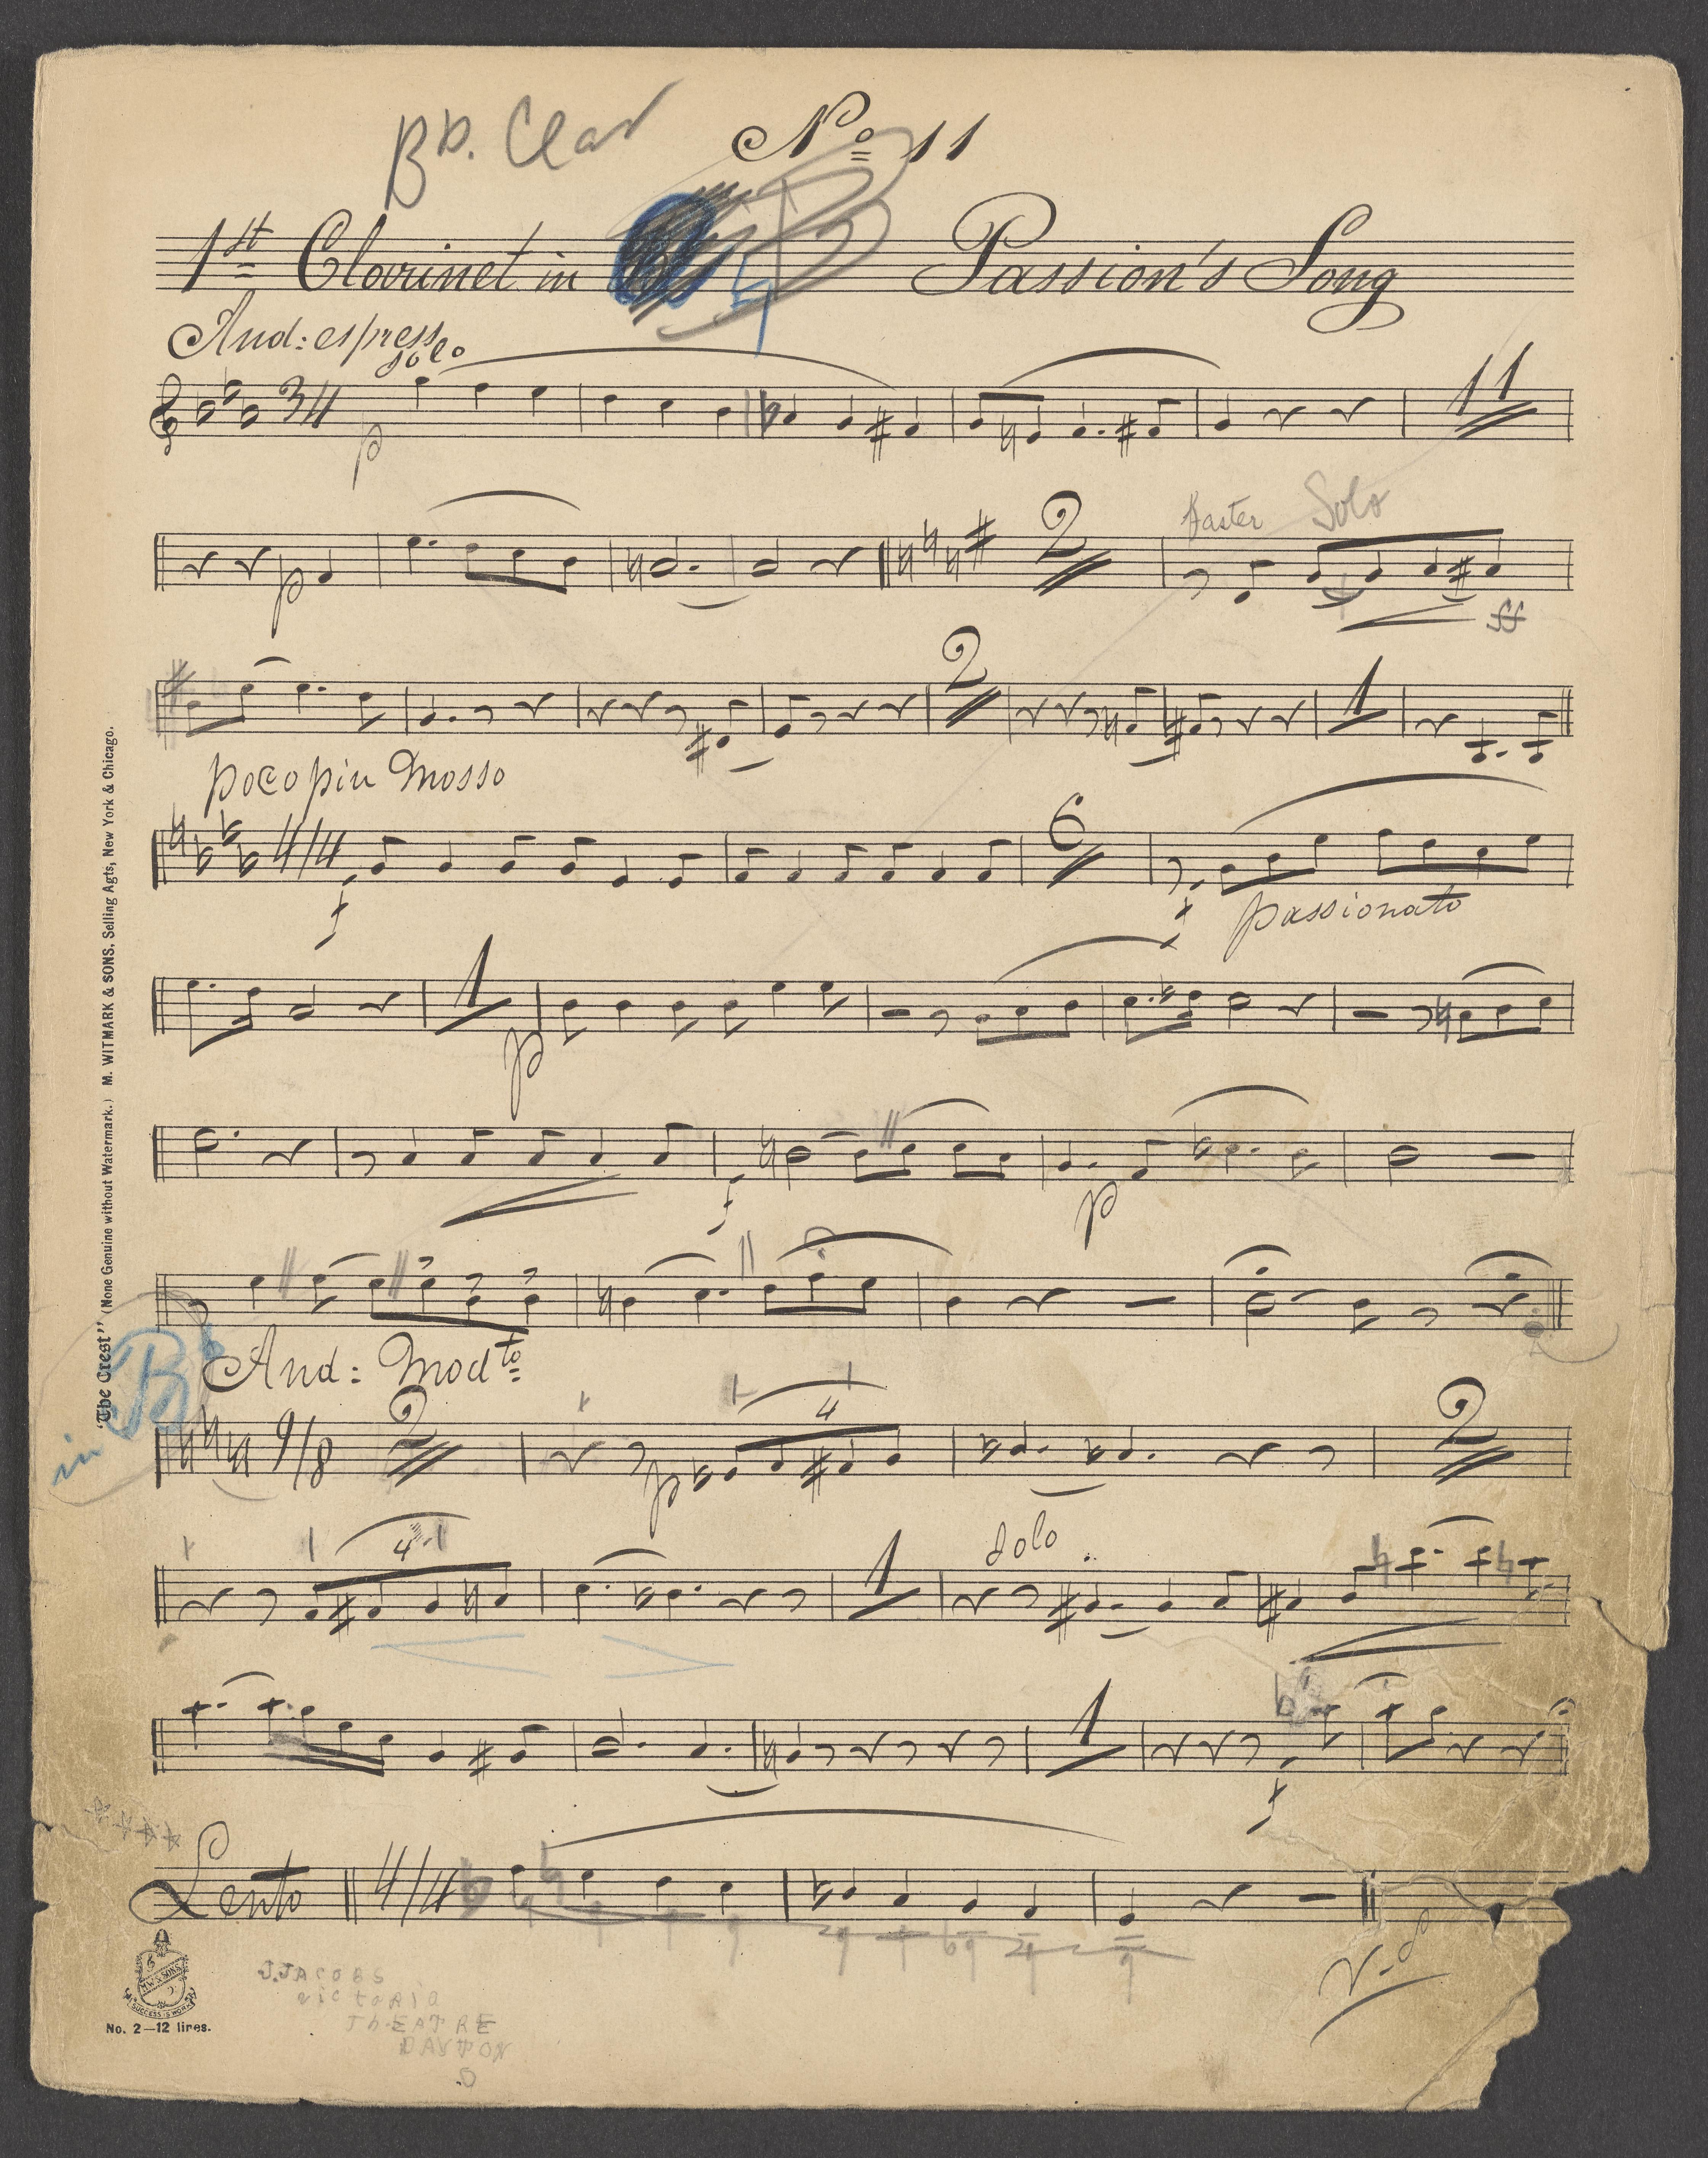 Bb. Clar
No 11
1st Clarinet in
Passion's Song
And: espress
solo
3/4
p
11
p
2
Faster Solo
ff
2
1
poco piu Mosso
4/4
f
6
f
passionato
1
p
f
p
in Bb
And: Modto
9/8
2
p
4
2
4
Solo
1
1
f
Lento
4/4
V.S
"The Crest" (None Genuine without Watermark.) M. WITMARK & SONS, Selling Agts, New York & Chicago.
M.W. & SONS
SUCCESS IS WORK
No. 2—12 lines.
J. JACOBS
victoRIA
ThEATRE
DAYTON
O